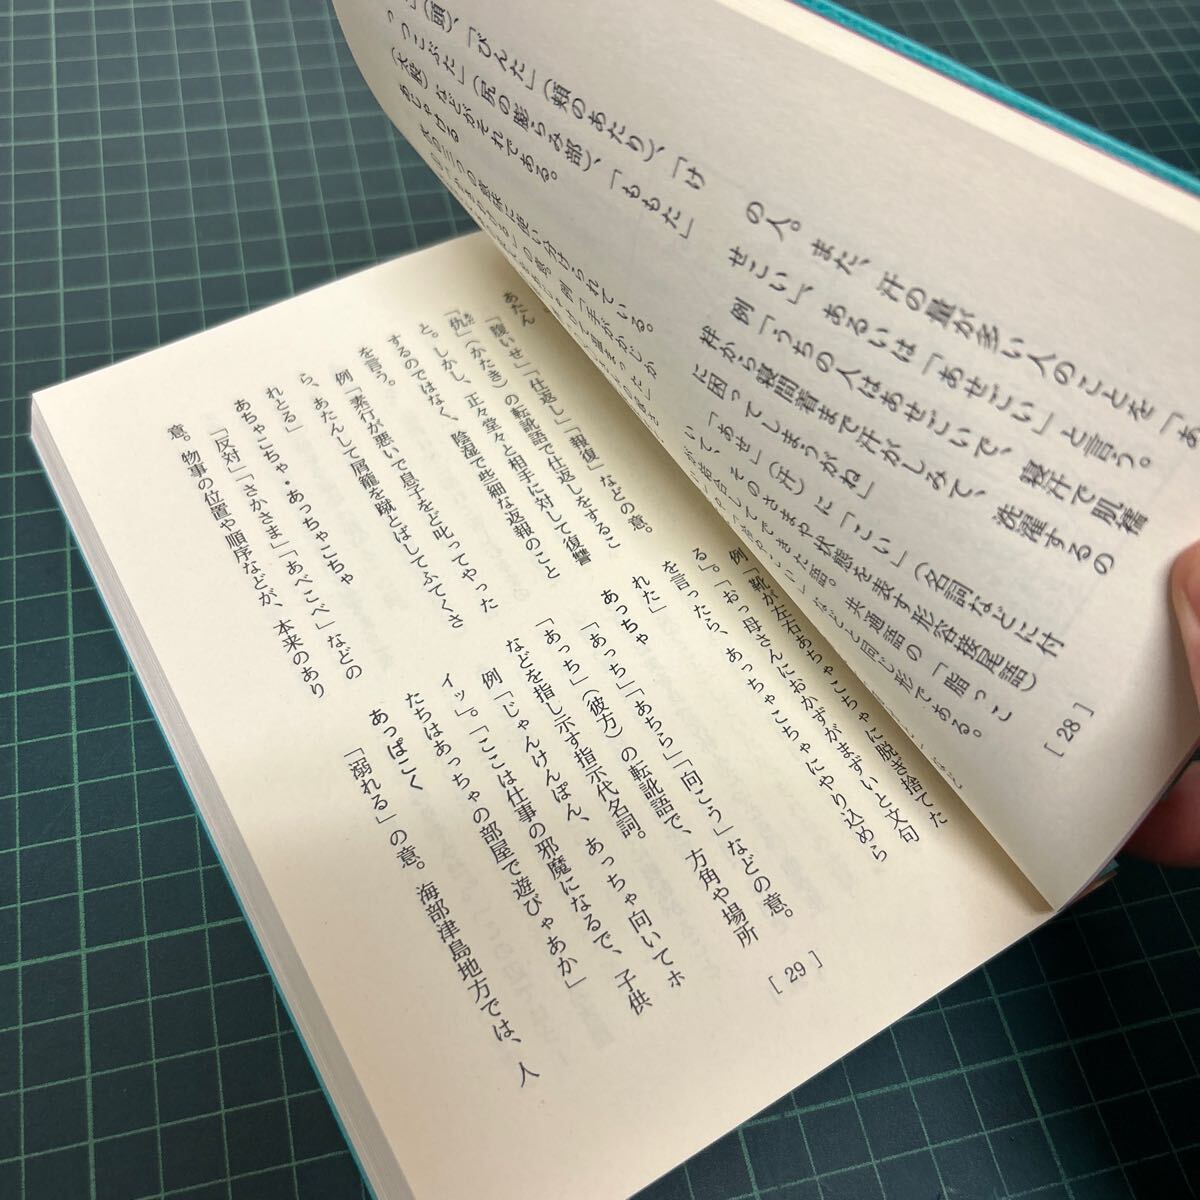 の人。また、汗の量が多い人のことを「あ
せこい」、あるいは「あせこい」と言う。
例「うちの人はあせこいで、寝汗で肌襦
袢から寝間着まで汗がしみて、洗濯するの
に困ってしまうがね」
「あせ」(汗)に「こい」(名詞などに付
いて、そのさまや状態を表す形容接尾語)
が結合してできた語。共通語の「脂っこ
などと同じ形である。
(頭)、「びんた」(頬のあたり)、「け
つこぶた」(尻の膨らみ部)、「ももた」
(太股)などがそれである。
あじゃける
次の三つの意味に使い分けられている。
[ 28 ]
あたん
「腹いせ」「仕返し」「報復」などの意。
「仇」(かたき)の転訛語で仕返しをするこ
と。しかし、正々堂々と相手に対して復讐
するのではなく、陰湿で些細な返報のこと
を言う。
例「素行が悪いで息子をど叱ってやった
ら、あたんして屑籠を蹴とばしてふてくさ
れとる」
あちゃこちゃ・あっちゃこちゃ
「反対」「さかさま」「あべこべ」などの
意。物事の位置や順序などが、本来のあり
例「靴が左右あちゃこちゃに脱ぎ捨てた
る」。「おっ母さんにおかずがまずいと文句
を言ったら、あっちゃこちゃにやり込めら
れた」
あっちゃ
「あっち」「あちら」「向こう」などの意。
「あっち」(彼方)の転訛語で、方角や場所
などを指し示す指示代名詞。
例「じゃんけんぽん、あっちゃ向いてホ
イッ」。「ここは仕事の邪魔になるで、子供
たちはあっちゃの部屋で遊びゃあか」
あっぱこく
「溺れる」の意。海部津島地方では、人
[ 29 ]